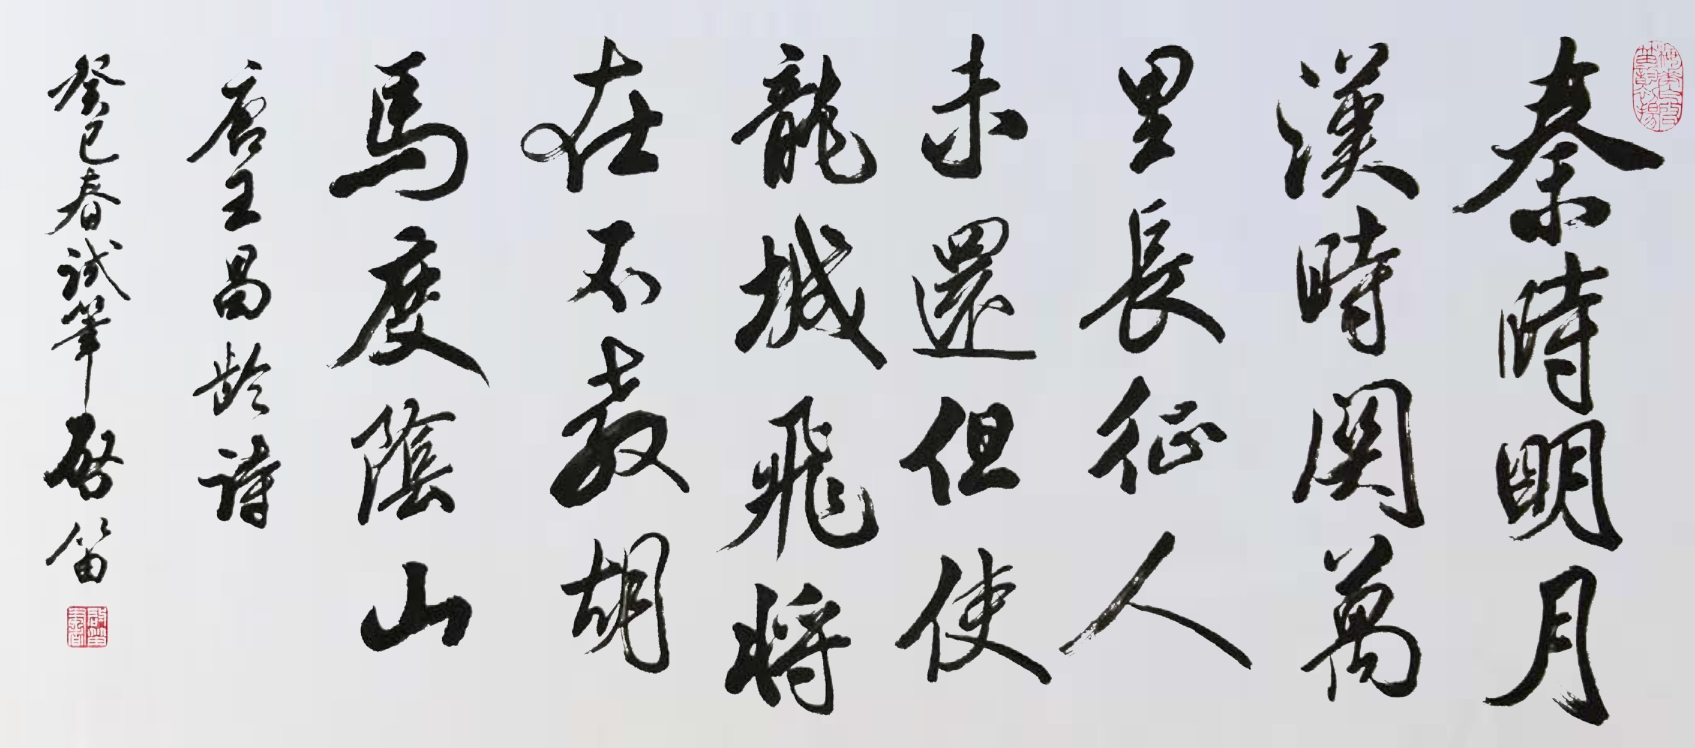 秦時明月
漢時関萬
里長征人
未還但使
龍城飛将
在不教胡
馬度陰山
唐王昌齡詩
癸巳春試筆啓笛